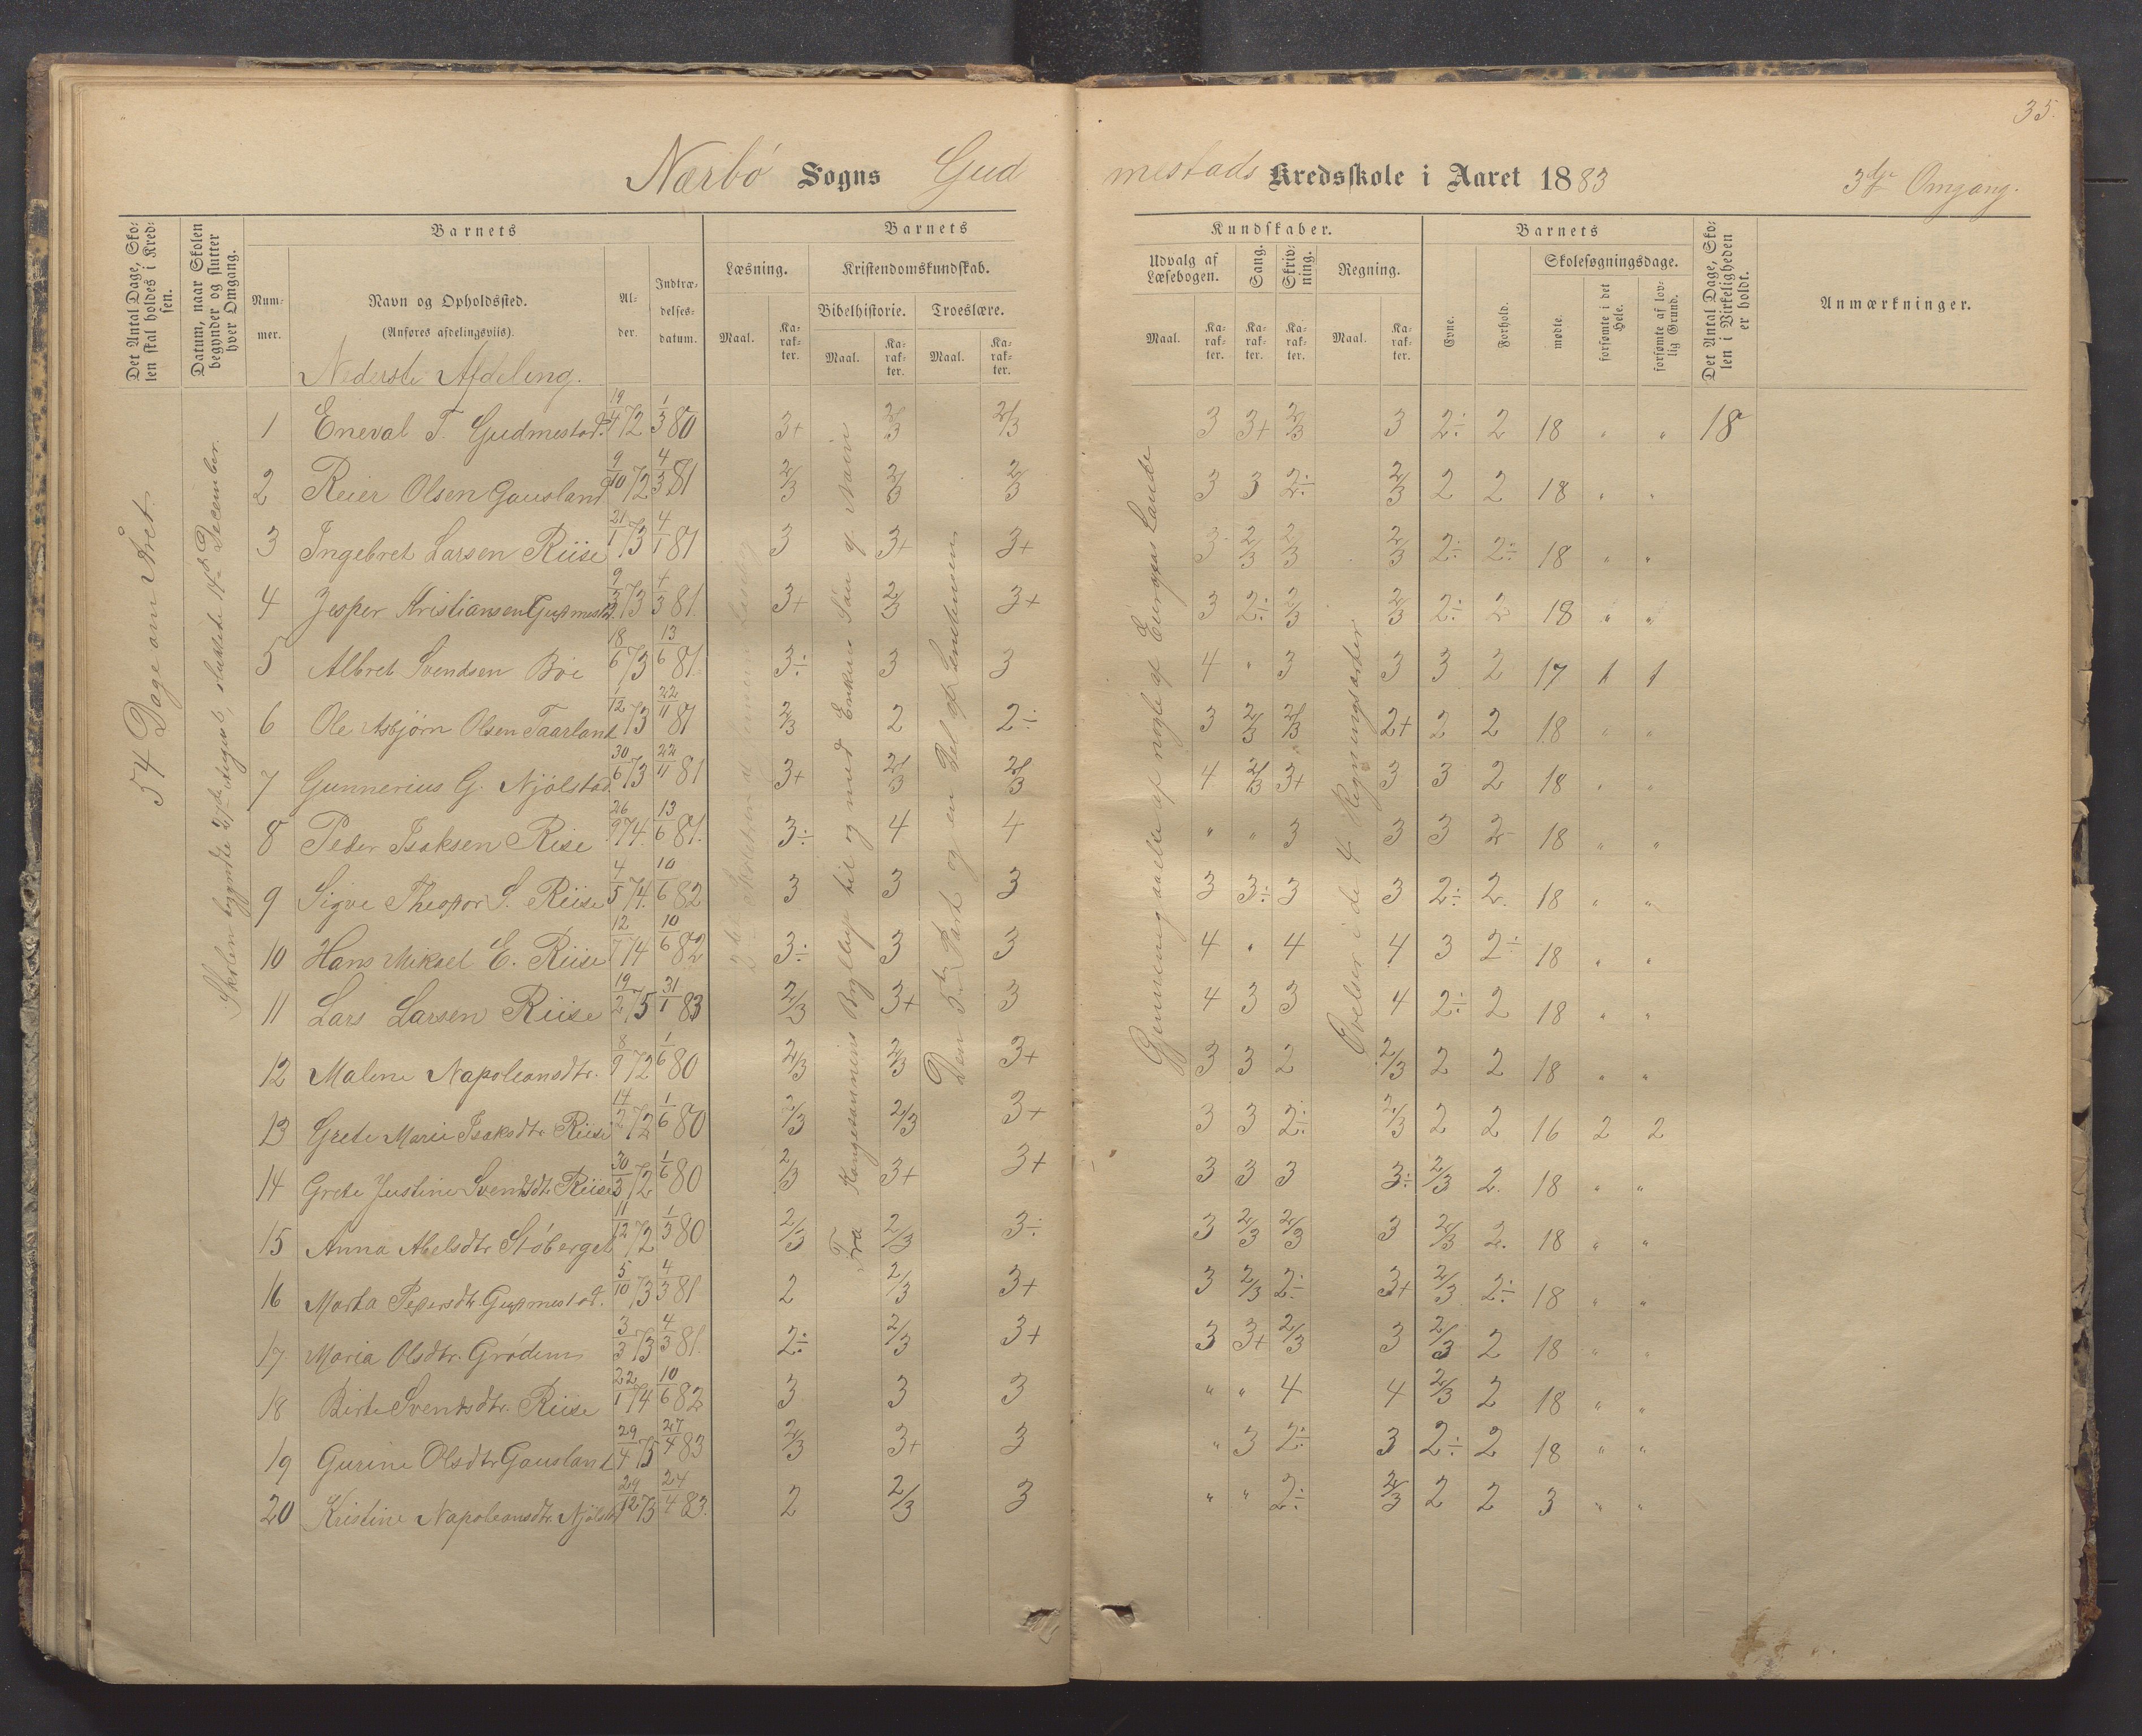 35.
Nærbö Sogns Gudmestads Kredsskole i Aaret 1883 3die Omgang.
Det Antal Dage, Skolen skal holdes i Kredsen.
Datum, naar Skolen begynder og slutter hver Omgang.
Barnets
Nummer.
Navn og Opholdssted.
(Anføres afdelingsviis).
Alder.
Indtrædelsesdatum.
Barnets Kundskaber.
Læsning.
Maal. Karakter.
Kristendomskundskab.
Bibelhistorie. Troeslære.
Maal. Karakter. Maal. Karakter.
Udvalg af Læsebogen.
Maal. Karakter.
Sang. Karakter.
Skrivning. Karakter.
Regning.
Maal. Karakter.
Barnets
Evne. Forhold.
Skolesøgningsdage.
mødte. forsømte i det Hele. forsømte af lovlig Grund.
Det Antal Dage, Skolen i Virkeligheden er holdt.
Anmærkninger.
Nederste Afdeling.
54 Dage om Året.
Skolen begyndte 27de August, sluttede 14de December.
Fra Kongesønnens Bryllup til og med Enkens Søn af Nain
Den 3die Part og en Del af
Gjennemgaaelse af nogle af Europas Lande
Øvelser i de 4 Regningsarter
1 Eneval T. Gudmestad. 19/4 72 1/3 80 3+ 2/3 2/3 3 3+ 2/3 3 2÷ 2 18 " " 18
2 Reier Olsen Gausland 9/10 72 4/3 81 2/3 2/3 2/3 3 3 2÷ 2/3 2 2 18 " "
3 Ingebret Larsen Riise 21/1 73 4/1 81 3 3+ 3+ 3 2/3 2/3 2/3 2÷ 2÷ 18 " "
4 Jesper Kristiansen Gudmestad 9/5 73 4/3 81. 3+ 2/3 3+ 3 2÷ 2/3 2/3 2÷ 2 18 " "
5 Albret Svendsen Böe 18/6 73 13/6 81. 3÷ 3 3 4 " 3 3 3 2 17 1 1
6 Ole Asbjørn Olsen Taarland 1/12 73 22/11 81 2/3 2 2÷ 3 2/3 2/3 2+ 2 2 18 " "
7 Gunnerius G. Njölstad. 30/6 73 22/11 81 3+ 2/3 2/3 4 2/3 3+ 3 3 2 18 " "
8 Peder Isaksen Riise 26/9 74. 13/6 81. 3÷ 4 4 " " 3 3 3 2 18 " "
9 Sigve Theodor S. Riise 4/5 74. 10/6 82 3 3 3 3 3÷ 3 3 2÷ 2. 18 " "
10 Hans Mikael E. Riise 12/7 74 10/6 82 3÷ 3 3 4 " 4 4 3 2÷ 18 " "
11 Lars Larsen Riise 19/2 75 31/1 83 2/3 3+ 3 4 3 3 4 2÷ 2 18 " "
12 Malene Napoleonsdtr. 8/9 72 1/6 80 2/3 2/3 3+ 3 3 2 2/3 2 2 18 " "
13 Grete Marie Isaksdtr Riise 14/2 72 1/6 80 2/3 2/3 3+ 3 3 2÷ 2/3 2 2 16 2 2
14 Grete Justine Svendsdtr. Riise 30/3 72 1/6 80 2/3 3+ 3+ 3 3 3 3÷ 2/3 2. 18 " "
15 Anna Abelsdtr Stöberget 11/12 72 1/3 80 2/3 2/3 3÷ 3 2/3 2/3 3 2/3 2. 18 " "
16 Marta Pedersdtr. Gudmestad. 5/10 73 4/3 81 2 2/3 3+ 3 2/3 2÷ 3+ 2/3 2÷ 18 " "
17 Maria Olsdtr. Grödem 3/3 73 4/3 81. 2÷ 2/3 3+ 3 3+ 2/3 3 2/3 2 18 " "
18 Birte Svendsdtr. Riise 22/1 74 10/6 82 3 3 3 " " 4 4 2/3 2 18 " "
19 Gurine Olsdtr Gausland 29/4 75 27/4 83 2/3 3+ 3 " 3 2÷ 3 2÷ 2 18 " "
20 Kristine Napoleonsdtr. Njölst 24/12 73 24/4 83. 2 2/3 3 " " 2÷ 2/3 2 2 3 " "